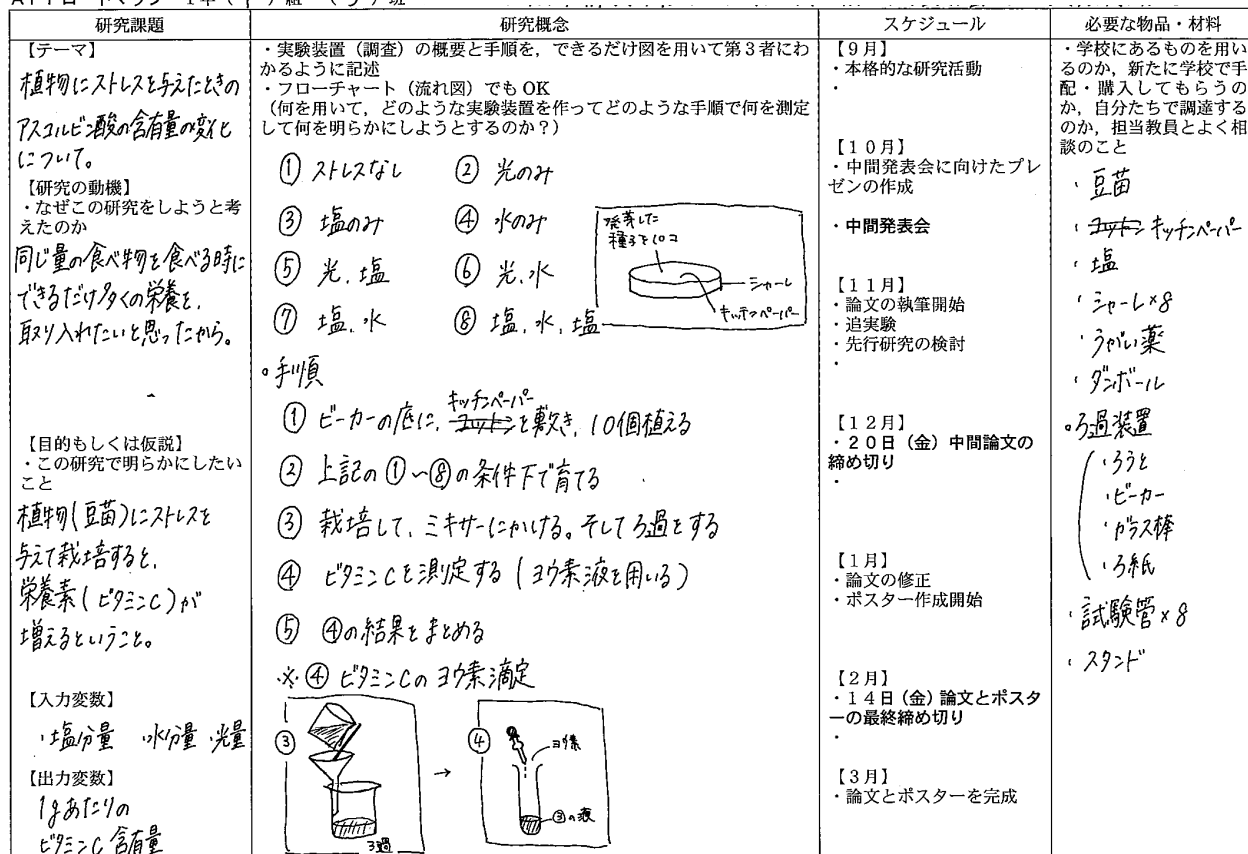 研究課題
【テーマ】
植物にストレスを与えたときの
アスコルビン酸の含有量の変化
について。
【研究の動機】
・なぜこの研究をしようと考
えたのか
同じ量の食べ物を食べる時に
できるだけ多くの栄養を、
取り入れたいと思ったから。
【目的もしくは仮説】
・この研究で明らかにしたい
こと
植物(豆苗)にストレスを
与えて栽培すると、
栄養素(ビタミンC)が
増えるということ。
【入力変数】
・塩分量 ・水分量 ・光量
【出力変数】
1gあたりの
ビタミンC含有量
研究概念
・実験装置(調査)の概要と手順を，できるだけ図を用いて第3者にわ
かるように記述
・フローチャート(流れ図)でもOK
(何を用いて，どのような実験装置を作ってどのような手順で何を測定
して何を明らかにしようとするのか？)
① ストレスなし ② 光のみ
③ 塩のみ ④ 水のみ
⑤ 光、塩 ⑥ 光、水
⑦ 塩、水 ⑧ 塩、水、塩
発芽した
種子を10コ
シャーレ
キッチンペーパー
○手順
キッチンペーパー
① ビーカーの底に、コットンを敷き、10個植える
② 上記の①〜⑧の条件下で育てる
③ 栽培して、ミキサーにかける。そしてろ過をする
④ ビタミンCを測定する(ヨウ素液を用いる)
⑤ ④の結果をまとめる
※④ ビタミンCのヨウ素滴定
③
ろ過
→
④
ヨウ素
③の液
スケジュール
【9月】
・本格的な研究活動
・
【10月】
・中間発表会に向けたプレ
ゼンの作成
・中間発表会
【11月】
・論文の執筆開始
・追実験
・先行研究の検討
・
【12月】
・20日(金)中間論文の
締め切り
・
【1月】
・論文の修正
・ポスター作成開始
【2月】
・14日(金)論文とポスタ
ーの最終締め切り
・
【3月】
・論文とポスターを完成
必要な物品・材料
・学校にあるものを用い
るのか，新たに学校で手
配・購入してもらうの
か，自分たちで調達する
のか，担当教員とよく相
談のこと
・豆苗
・コットン キッチンペーパー
・塩
・シャーレ×8
・うがい薬
・ダンボール
○ろ過装置
・ろうと
・ビーカー
・ガラス棒
・ろ紙
・試験管×8
・スタンド